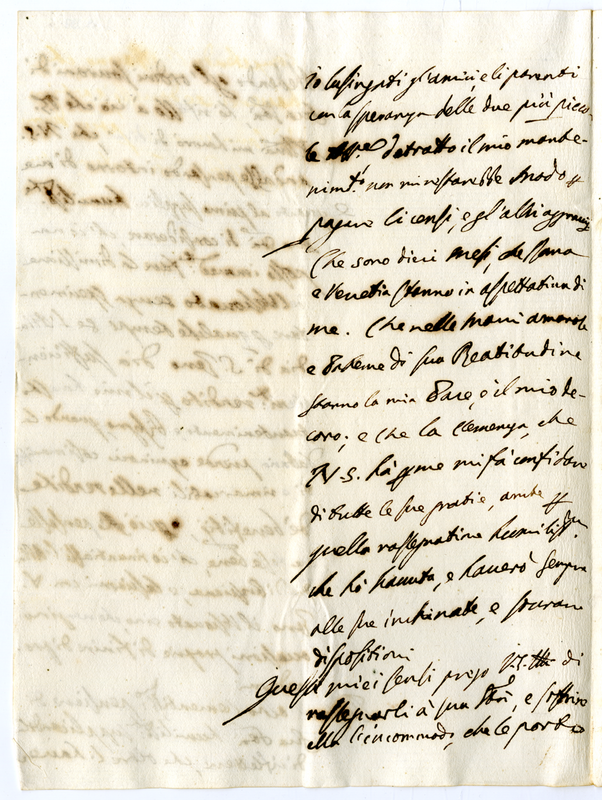 io lusingati gl'amici, e li parenti
con la speranza delle due più picco-
le detratto il mio mante-
nim.to non mi restarebbe modo
pagare li censi, e gl'altri
Che sono dieci mesi, che Roma
e Venetia stanno in aspettativa di
me. Che nelle mani amorose
e Paterne di sua Beatitudine
stanno la mia Pace, e il mio de-
coro; e che la clemenza, che
N. S. hà p me mi fà confidare
di tutte le sue gratie, anche p
quella rassegnatione humiliss.ma
che hò hauuta, e hauerò sempre
alle sue inchinate, e sourane
dispositioni
Questi miei sensi prego V. S. Ill.ma di
rassegnarli à sua, e
alli incommodi, che le porto